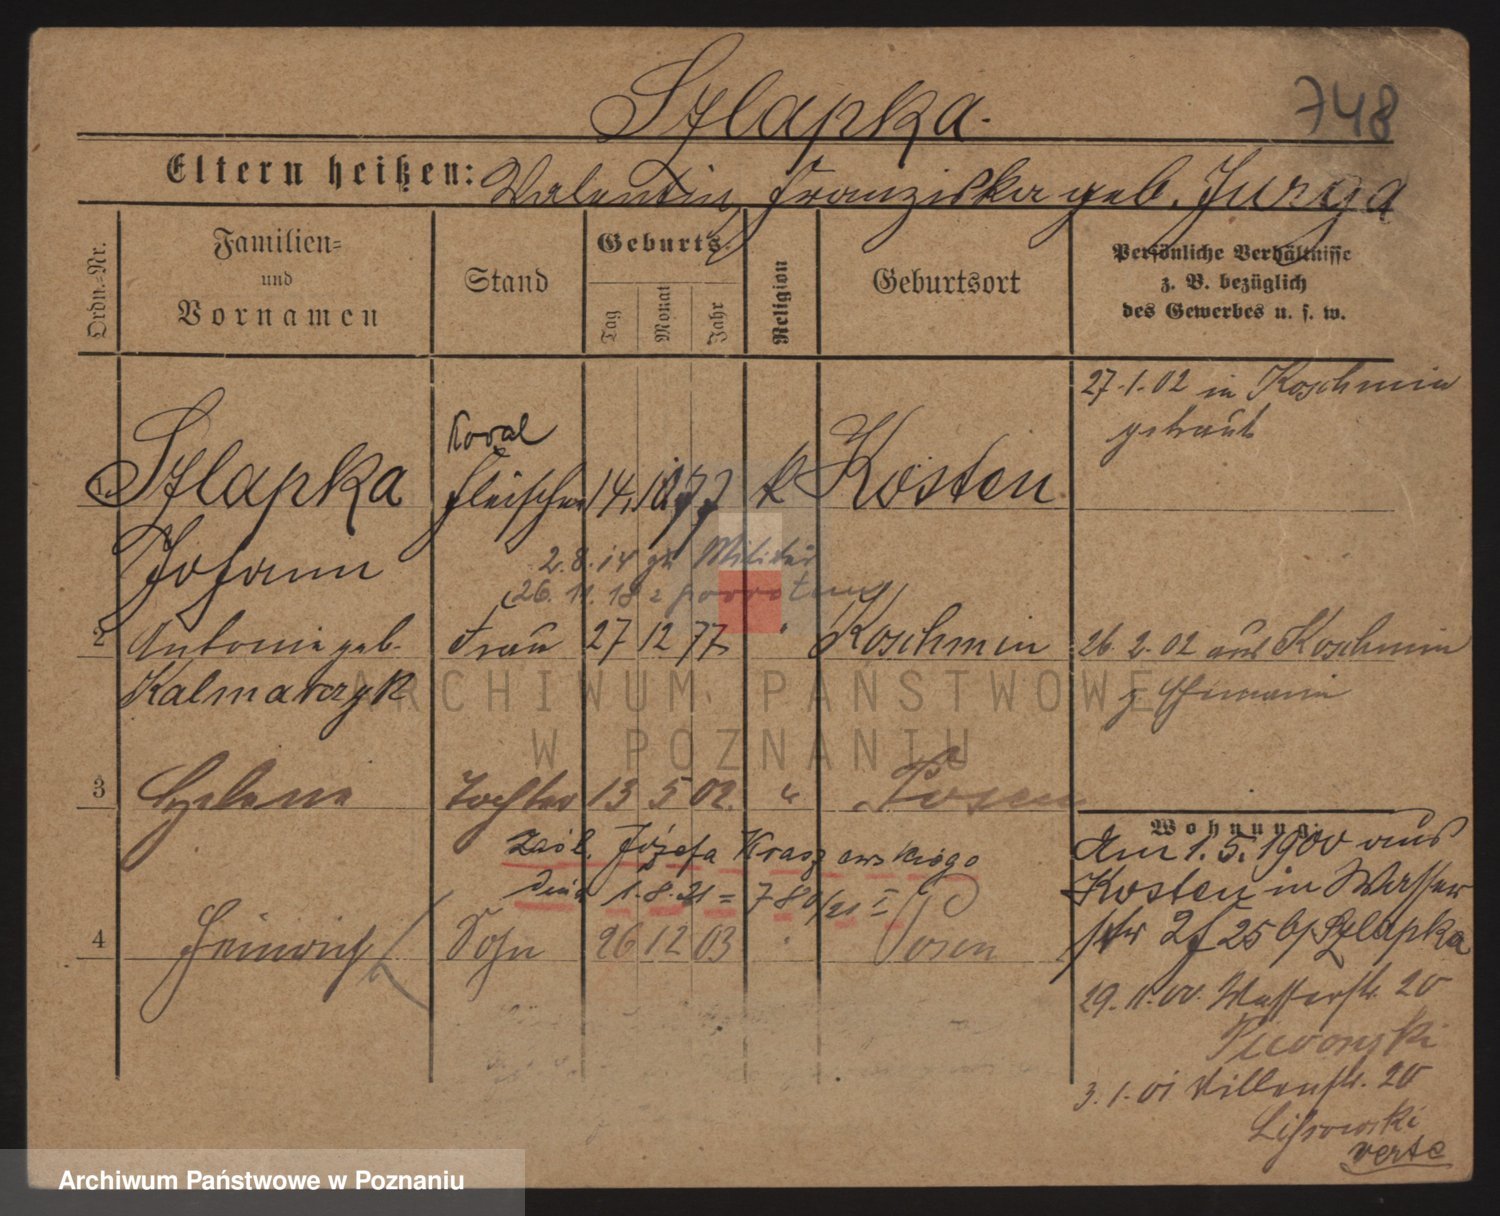 748
Szlapka.
Eltern heißen: Valentin, Franziska geb. Jurga
Ordn.=Nr.
Familien=
und
Vornamen
Stand
Geburts
Tag
Monat
Jahr
Religion
Geburtsort
Persönliche Verhältnisse
z. B. bezüglich
des Gewerbes u. s. w.
27.1.02 in Koschmin
getraut
1. Szlapka Fleischer 14. 10 77 k Kosten
Johann
2.8.14 zu Militär
26.11.18 z powrotem
2 Antonie geb. Frau 27 12 77 " Koschmin
Kalmarczyk
26.2.02 aus Koschmin
z Ehemann
ARCHIWUM PAŃSTWOWE
W POZNANIU
3 Helene Tochter 13 5 02. " Posen
Józefa Kraszewskiego
dnia 1.8.21 = 780/21 I
4 Heinrich Sohn 26 12 03 " Posen
Wohnung:
Am 1.5.1900 aus
Kosten in Wasser
str 25 b/ Szlapka
29.11.00. Wasserstr. 20
3.1.01 20
verte
Archiwum Państwowe w Poznaniu